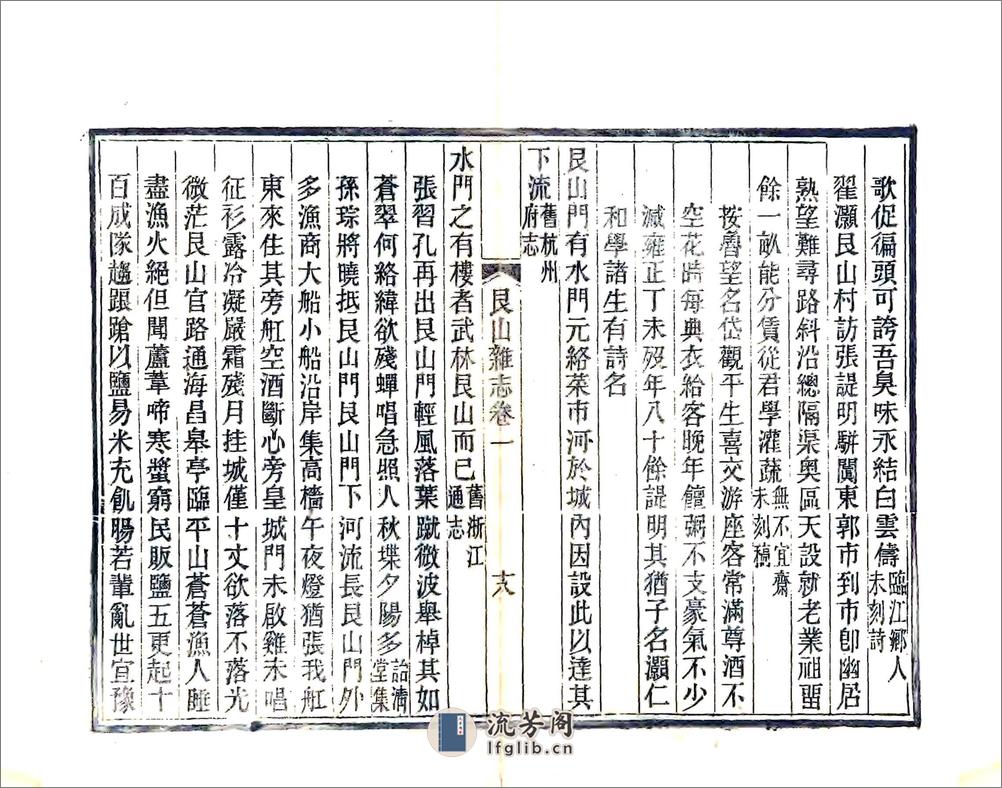 歌促徧頭可誇吾臭味永結白雲儔臨江鄉人未刻詩
翟灝艮山村訪張諟明駢闐東郭市到市卽幽居
熟望難尋路斜沿總隔渠奥區天設就老業祖畱
餘一畝能分賃從君學灌蔬無不宜齋未刻稿
按魯望名岱觀平生喜交游座客常滿尊酒不
空花時每典衣給客晚年饘粥不支豪氣不少
減雍正丁未歿年八十餘諟明其猶子名灝仁
和學諸生有詩名
艮山門有水門元絡菜市河於城內因設此以達其
下流舊杭州府志
艮山雜志卷一
十八
水門之有樓者武林艮山而已舊浙江通志
張習孔再出艮山門輕風落葉蹴微波舉棹其如
蒼翠何絡緯欲殘蟬唱急照人秋堞夕陽多詒清堂集
孫琮將曉抵艮山門艮山門下河流長艮山門外
多漁商大船小船沿岸集高檣午夜燈猶張我舡
東來住其旁舡空酒斷心旁皇城門未啟雞未唱
征衫露冷凝嚴霜殘月挂城僅十丈欲落不落光
微茫艮山官路通海昌皋亭臨平山蒼蒼漁人睡
盡漁火絕但聞蘆葦啼寒螿窮民販鹽五更起十
百成隊趨踉蹌以鹽易米充飢腸若輩亂世宜豫
流芳阁
lfglib.cn